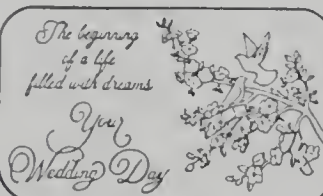 The beginning
of a life
filled with dreams
Your
Wedding Day